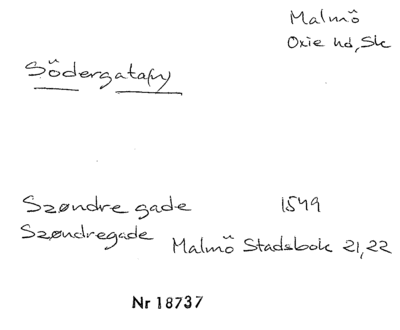 Malmö
Oxie hd, Sk
Södergata(n)
Szøndre gade 1549
Szøndregade Malmö Stadsbok 21, 22
Nr 18737